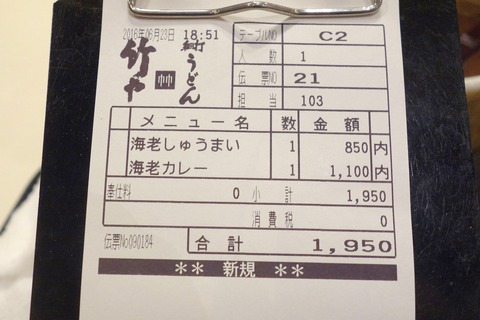 2016年06月23日 18:51
テーブルNO C2
人数 1
伝票NO 21
担当 103
竹や
うどん
メニュー名 数 金額
海老しゅうまい 1 850内
海老カレー 1 1,100内
奉仕料 0 小計 1,950
消費税 0
伝票No090184 合計 1,950
** 新規 **